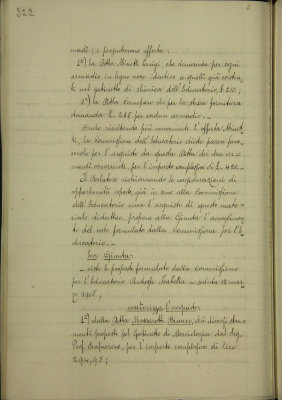 madi; e propongono offerta:
1°) la Ditta Minetti Luigi, che domanda per ogni
armadio in legno noce identico a quelli già esisten
ti nel gabinetto di chimica dell'Educatorio, £ 210;
2°) la Ditta che per la stessa fornitura
domanda £ 215 per cadun armadio._
Onde risultando più conveniente l'offerta Minet
ti, la Commissione dell'Educatorio diede parere favo
revole per l'acquisto da questa Ditta dei due ar-
madi occorrenti, per l'importo complessivo di £. 420._
Il Relatore richiamando le considerazioni di
opportunità esposte già in seno alla Commissione
dell'Educatorio circa l'acquisto di questo mate-
riale didattico propone alla Giunta l'accoglimen
to del voto formulato dalla Commissione per l'E
ducatorio._
La Giunta
_ viste le proposte formulate dalla Commissione
per l'Educatorio in seduta 12 mar
zo 1908;
autorizza l'acquisto:
1°) dalla Ditta Bianco, dei diversi stru-
menti proposti pel Gabinetto di dal Sig.
Prof. per l'importo complessivo di lire
294,95;